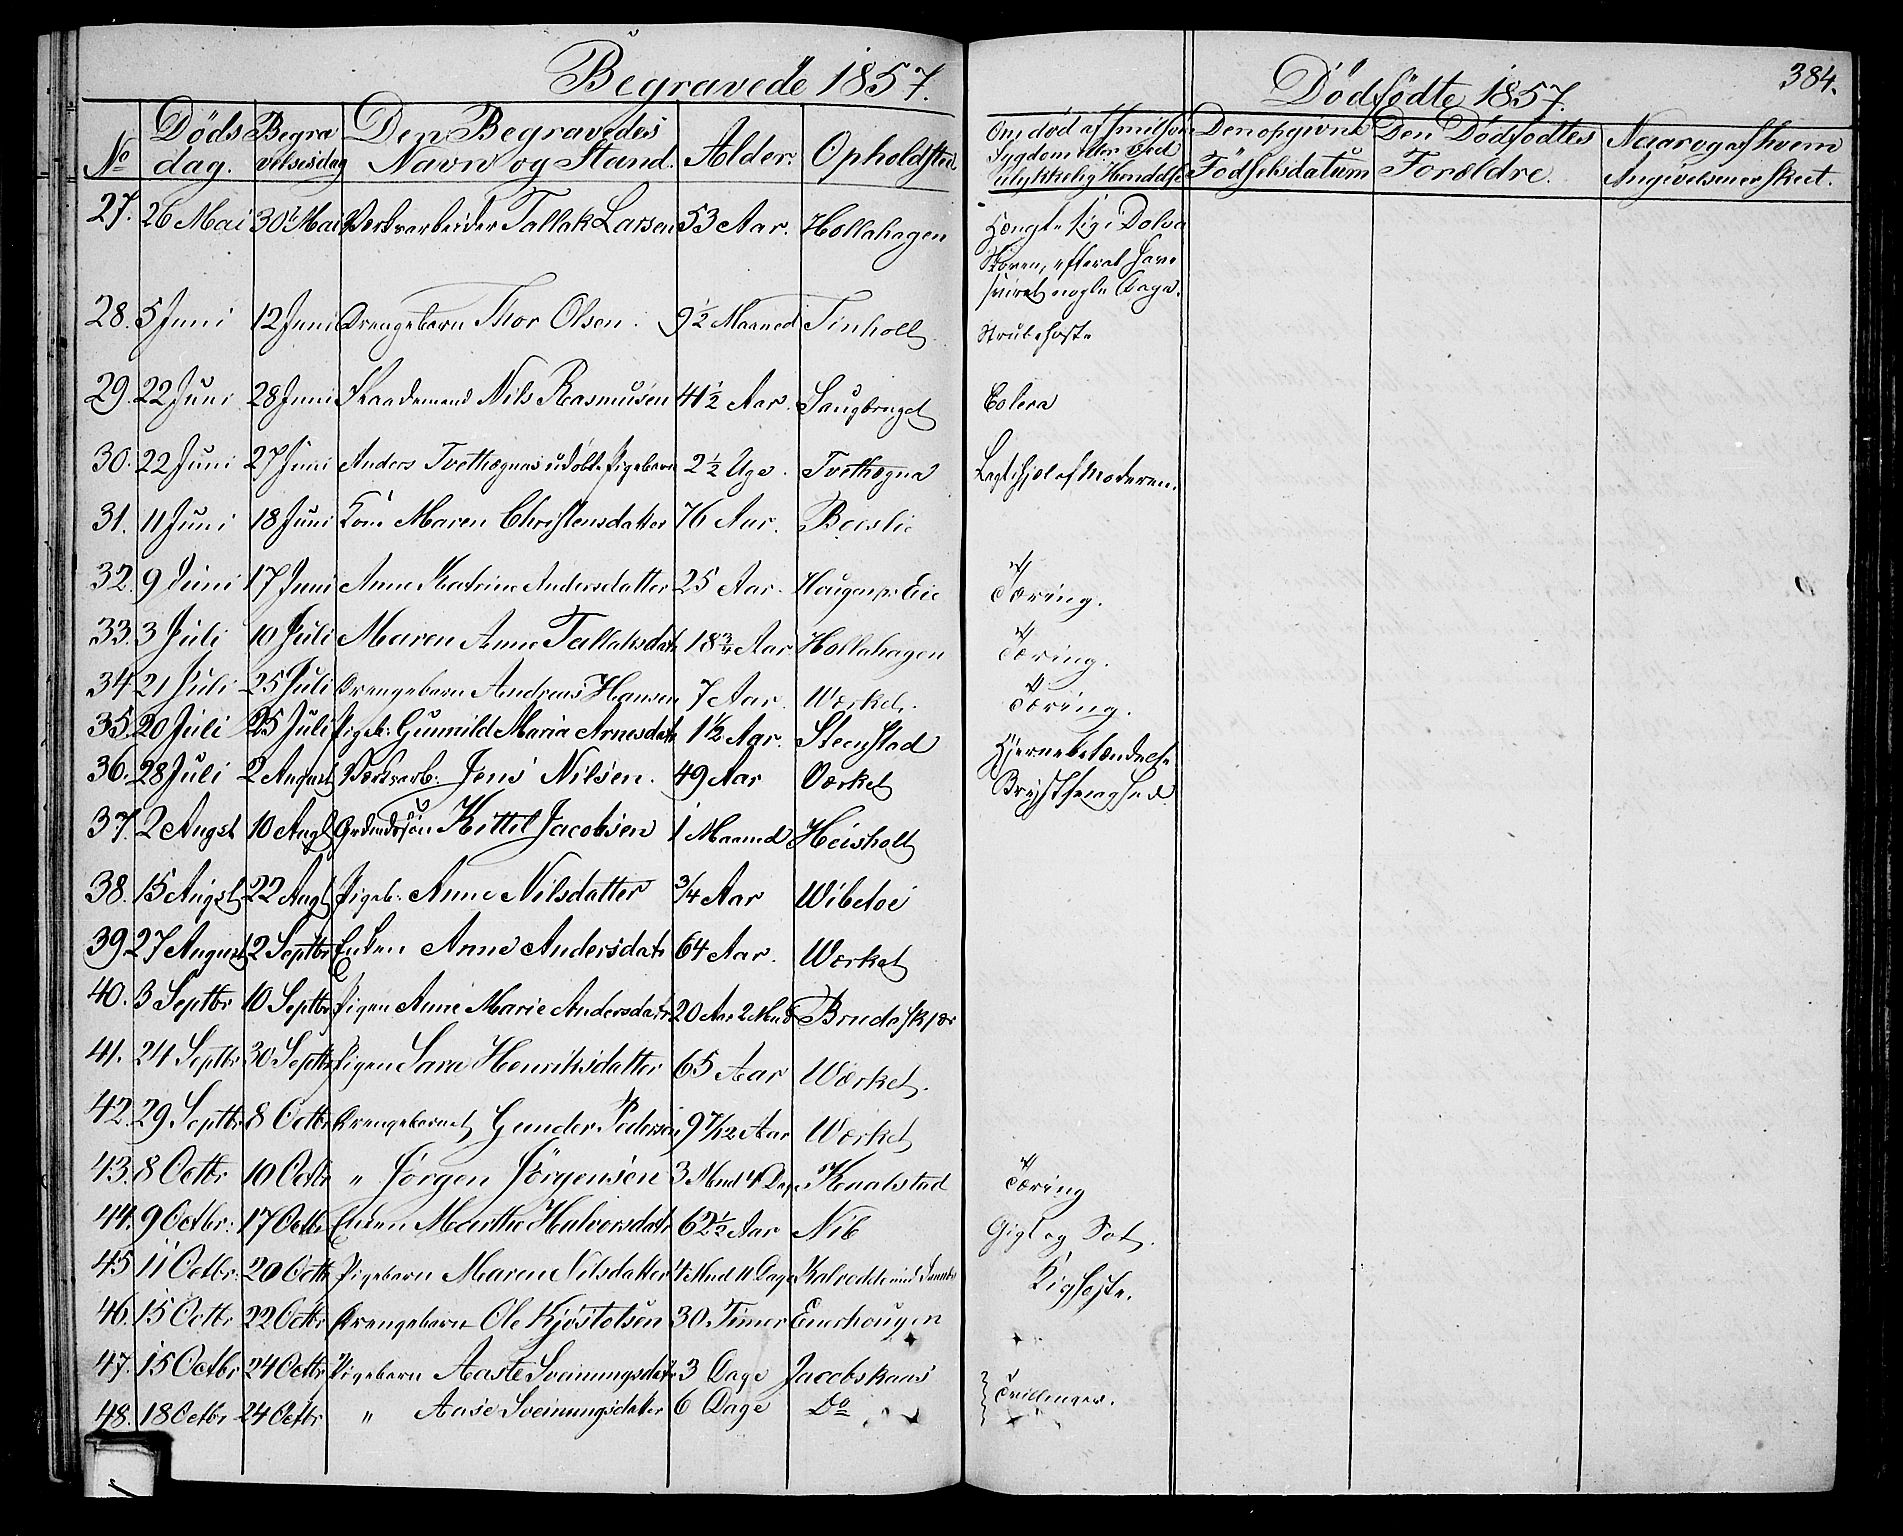 Begravede 1857.
Dødfødte 1857.
384.
No
Døds dag.
Begravelsesdag
Den Begravedes Navn og Stand.
Alder.
Opholdsted
Om død af smitsom Sygdom eller ved ulykkelig Hændelse
Den opgivne Fødselsdatum
Den Dødfødtes Forældre.
Naar og af hvem Angivelsen er skeet.
27. 26 Mai 30te Mai Værksarbeider Tallak Larsen 53 Aar. Hollahagen Hængte sig i Dolva
Skoven, efterat have
sviret nogle Dage.
28. 5 Juni 12 Juni Drengebarn Thor Olsen. 9½ Maaned Tinholt Strubehoste
29. 22 Juni 28 Juni Nils Rasmusen 41½ Aar. Saugbruget Colera
30. 22 Juni 27 Juni Anders Tvethægnas udøbte Pigebarn 2½ Uge. Tvethøgna Lagt ihjel af Moderen.
31. 11 Juni 18 Juni Kone Maren Christensdatter 76 Aar. Boeslie
32. 9 Juni 17 Juni Anne Katrine Andersdatter 25 Aar. Haugen pr Eie Tæring.
33. 3 Juli 10 Juli Maren Anne Tallaksdatr 18¾ Aar Hollahagen Tæring.
34. 21 Juli 25 Juli Drengebarn Andreas Hansen 7 Aar. Værket. Tæring.
35. 20 Juli 25 Juli Pigeb: Gunnild Maria Arnesdatr 1½ Aar. Steenstad Hjernebetændelse
36. 28 Juli 2 August Værksarb. Jens Nilsen. 49 Aar Værket Brystsvaghed
37. 2 Augst 10 Augt Kittil Jacobsen 1 Maaned Heisholt
38. 15 Augst 22 Augt Pigeb: Anne Nilsdatter ¾ Aar Wibetoe
39. 27 August 2 Septbr Enken Anne Andersdatr 64 Aar. Værket
40. 3 Septbr 10 Septbr Pigen Anne Marie Andersdatr 20 Aar 2 Mnd Brudeskjær
41. 24 Septbr 30 Septbr Pigen Sara Henriksdatter 65 Aar Værket.
42. 29 Septbr 8 Octbr Drengebarnet Gunder Pedersen 9 7/12 Aar Værket
43. 8 Octbr 10 Octbr " Jørgen Jørgensen 3 Mnd 4 Dage Knalstad Tæring
44. 9 Octbr: 17 Octbr Enken Marthe Halvorsdatr 62½ Aar Nib Gigt og Sot.
45. 11 Octbr. 20 Octbr Pigebarn Maren Nilsdatter 4 Mnd 11 Dage Kighoste.
46. 15 Octbr 22 Octbr Drengebarn Ole Kjøstolsen 30 Timer Enershougen
47. 15 Octbr 24 Octbr Pigebarn Aaste Sveinungsdatr 3 Dage Jacobskaas
Tvillinger.
48. 18 Octbr 24 Octbr " Aase Sveinungsdatter 6 Dage Do